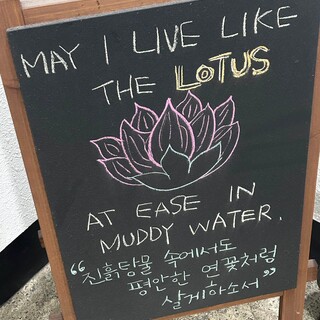 MAY I LIVE LIKE
THE LOTUS
AT EASE IN
MUDDY WATER.
"진흙탕물 속에서도
평안한 연꽃처럼
살게하소서"